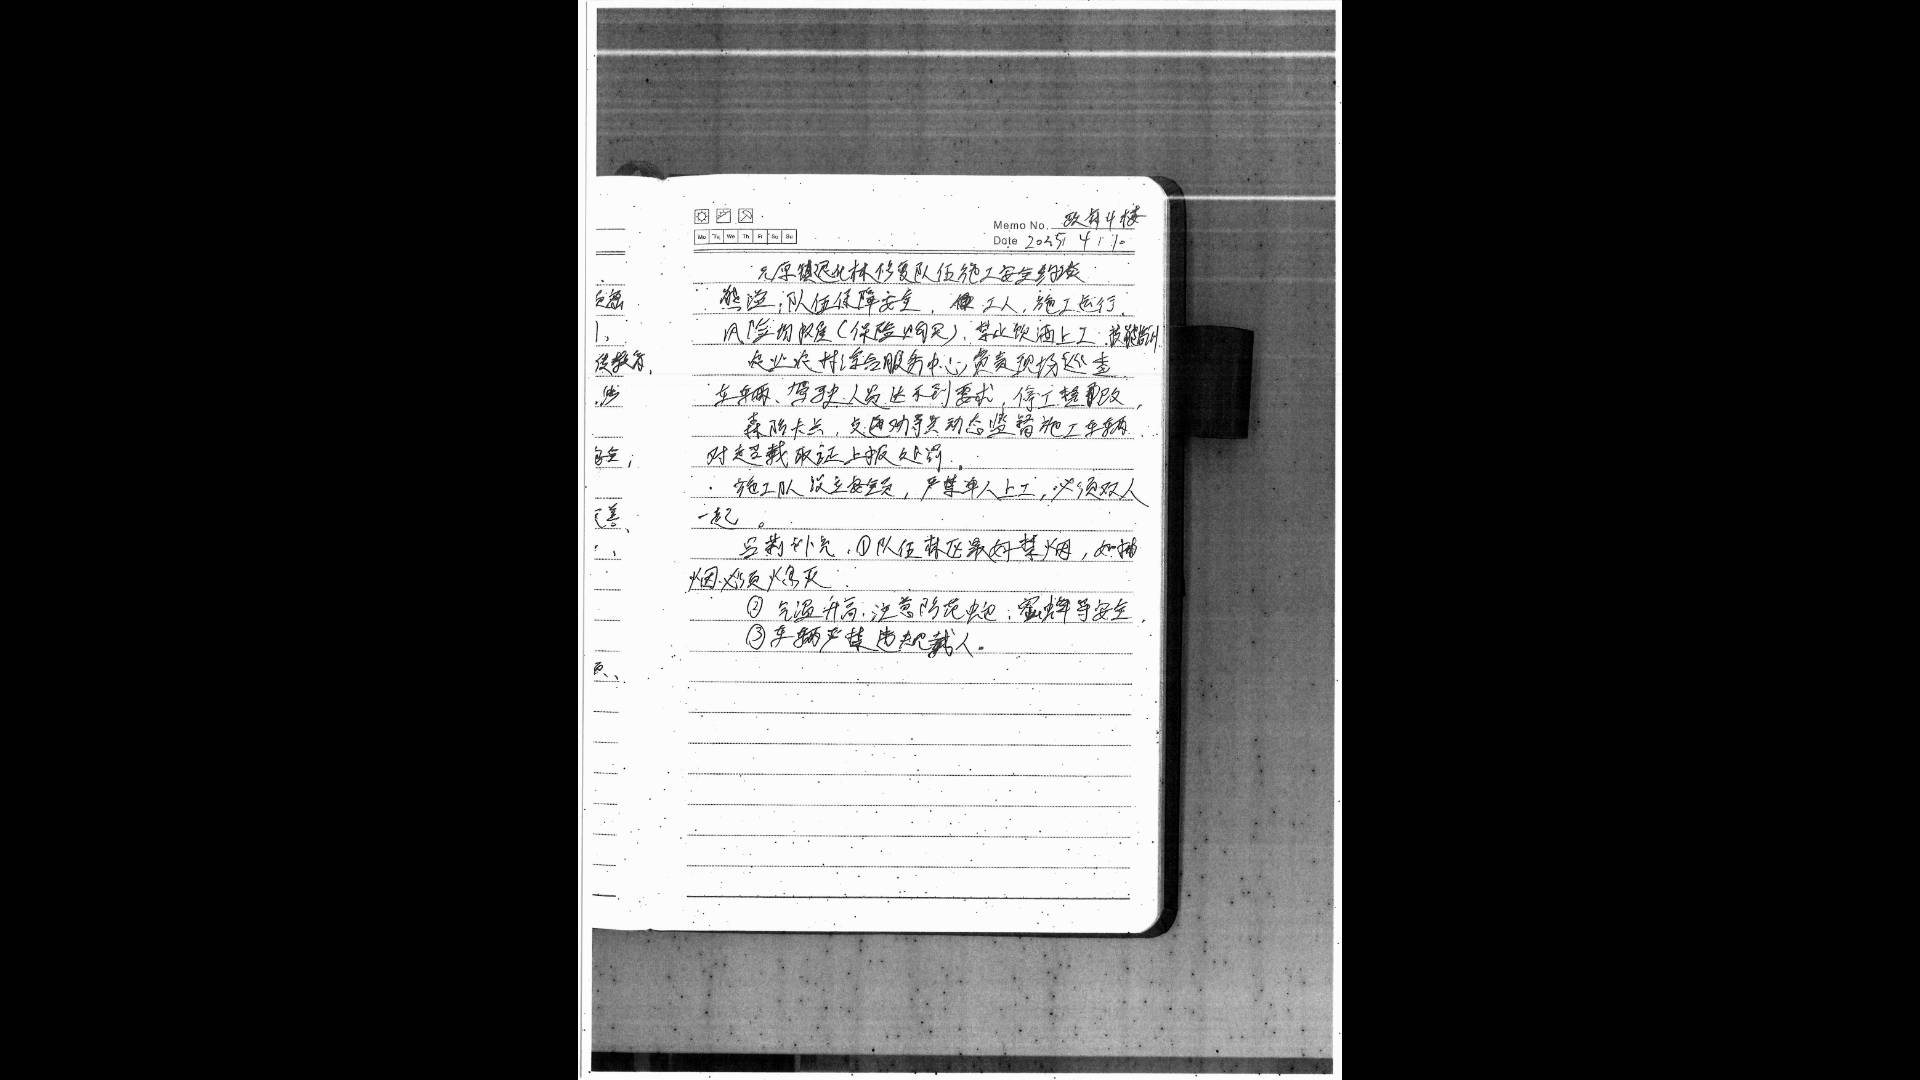 Memo No. 政府4楼
Mo Tu We Th Fr Sa Su
Date 2025 4 10
元厚镇退化林修复队伍施工安全约谈
熊滢:队伍保障安全,工人,施工运行、
风险的程度(保险购买),禁止饮酒上工,技能培训
农业农村综合服务中心负责现场巡查
车辆、驾驶人员达不到要求,停工整改,
森防卡点,交通劝导站动态监督施工车辆
对超载取证上报处罚。
施工队设立安全员,严禁单人上工,必须双人
一起。
补充:①队伍林区最好禁烟,如抽
烟必须熄灭
②气温升高,注意防范虫蛇,蜜蜂等安全.
③车辆严禁违规载人。
安全;